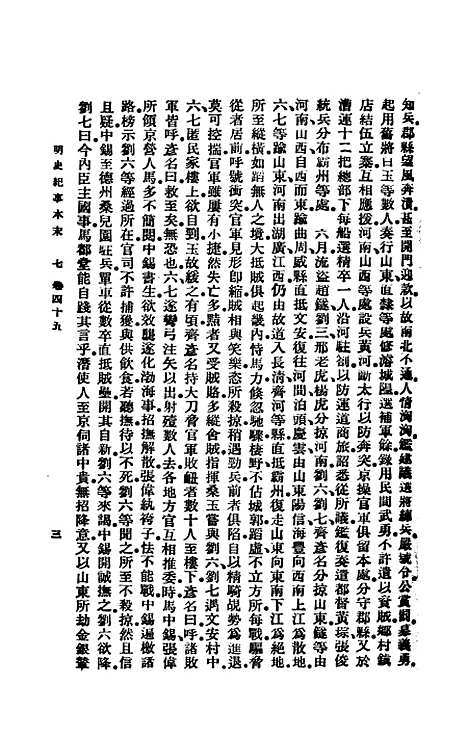 知兵郡縣望風奔潰甚至開門迎款以故南北不通人情洶洶鑑建議選將練兵嚴號令公賞罰募義勇
起用舊將白玉等數人奏行山東直隸等處修濬城隍選補軍餘錄用民間武勇不許遺以資賊鄉村鎮
店結伍立寨互相應援河南山西等處設兵黃河斷太行以防奔突京操官軍俱留本處分守郡縣又於
漕運十二把總部下每船選精卒一人沿河駐劄以防運道商旅詔悉從所議鑑復奏遣都督黃琮張俊
統兵分布霸州等處　六月流盜趙鐩劉三邢老虎楊虎分掠河南劉六劉七齊彥名分掠山東鐩等由
河南山西自西而東踰曲周威縣直抵文安復往河間泊頭慶雲由山東陽信海豐向西南上江爲散地
六七等踰山東河南出湖廣江西仍由故道入長清齊河等縣直抵霸州復走山東向東南下江爲絕地
所至縱橫如蹈無人之境大抵賊俱起畿內恃馬力倐忽馳驟棲野不佔城郭蹈虛不立方所每戰驅脅
從者居前呼號衝突官軍見形卽縮賊相與笑樂恣所殺掠稍遇勁兵前者俱陷自以精騎覘勢爲進退
莫可控揣官軍雖屢有小捷然失亡多黠者又受賊賂多縱舍賊指揮桑玉嘗與劉六劉七遇文安村中
六七匿民家樓上欲自到玉故緩之有頃齊彥名持大刀脅官軍敗䣊者數十人至樓下彥名曰呼諸敗
軍皆呼彥名曰救至矣無恐也六七遂彎弓注矢以出射殪數人去各地方官互相推委時馬中錫張偉
所領京營人馬多不簡閱中錫書生欲效龔遂化渤海事招撫解散張偉紈袴子怯不能戰中錫遍檄諸
路榜示劉六等經過所在官司不許捕獲與供飲食若聽撫待以不死劉六等聞之所至不殺掠然且信
且疑中錫至德州桑兒園駐兵單車從數卒直抵賊壘開其自新劉六等來謁中錫開誠撫之劉六欲降
劉七曰今內臣主國事馬都堂能自踐其言乎潛使人至京伺諸中貴無招降意又以山東所劫金銀輦
明史紀事本末　七　卷四十五　三